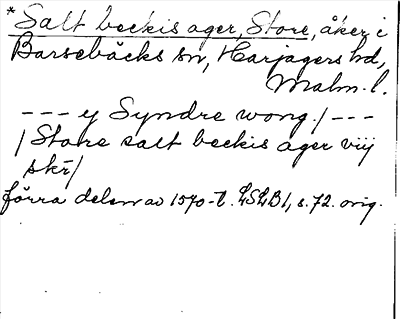 *Salt beckis ager, Store, åker i
Barsebäcks sn, Harjagers hd,
Malm. l.
--- y Syndre wong./ ---
/Store salt beckis ager viij
skr̄/
förra delen av 1570-t. LSLB1, s. 72. orig.